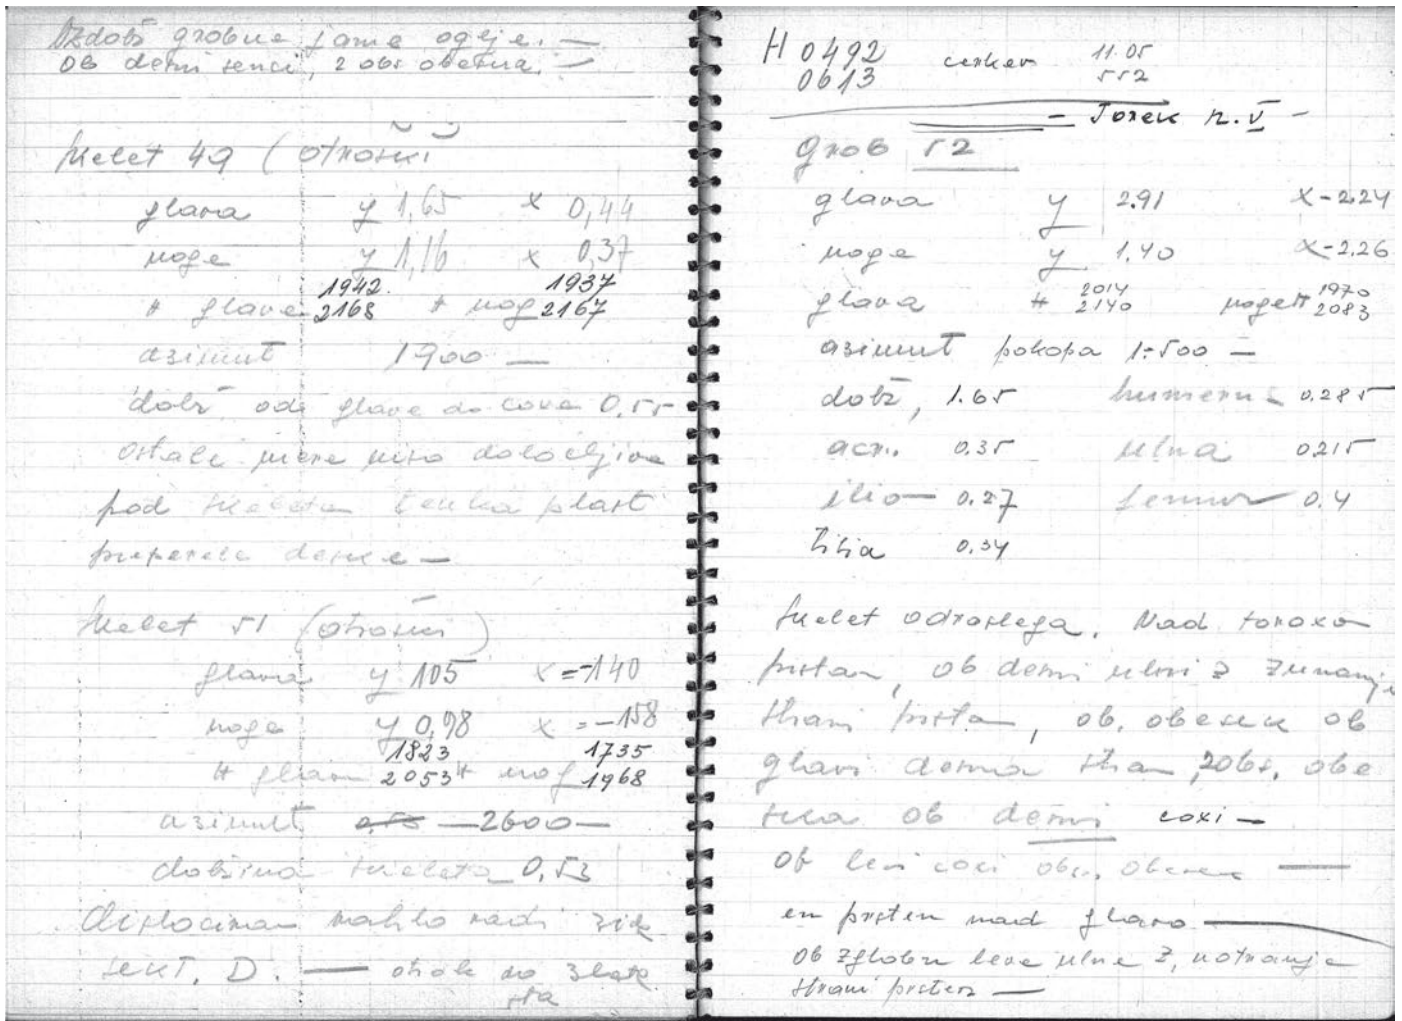 Vzdolž grobne jame oglje. —
ob desni senci, 2 obs. obeska. —
skelet 49 (otroški
glava y 1,65 x 0,44
noge y 1,16 x 0,37
1942. 1937
H glave 2168 H nog 2167
azimut 1900 —
dolž od glave do coxe 0.55
ostale mere niso določljive
pod skeletom tenka plast
preperele deske —
skelet 51 (otroški)
glava y 105 x = -140
noge y 0,98 x = -158
1823 1735
H glava 2053 H nog 1968
azimut — 2600 —
dolžina skeleta 0,53
dislociran rahlo radi
sekt. D. — otrok do 3 leta
H 0492 cerkev 11.05
0613 552
— Torek 12. V —
grob 52
glava y 2.91 x -2.24
noge y 1.40 x -2.26
2014 1970
glava H 2140 noge H 2083
azimut pokopa 1-500 —
dolž, 1.65 humerus 0.285
acr. 0.35 ulna 0.215
ilio — 0.27 femur 0.4
tibia 0.34
skelet odraslega. Nad toraxom
prstan, ob desni ulni z zunanje
strani prstan, ob. obesek ob
glavi desna stran, 2 obs. obe
ska ob desni coxi —
ob levi coxi obs. obesek —
en prsten nad glavo —
ob zglobu leve ulne z notranje
strani prsten —